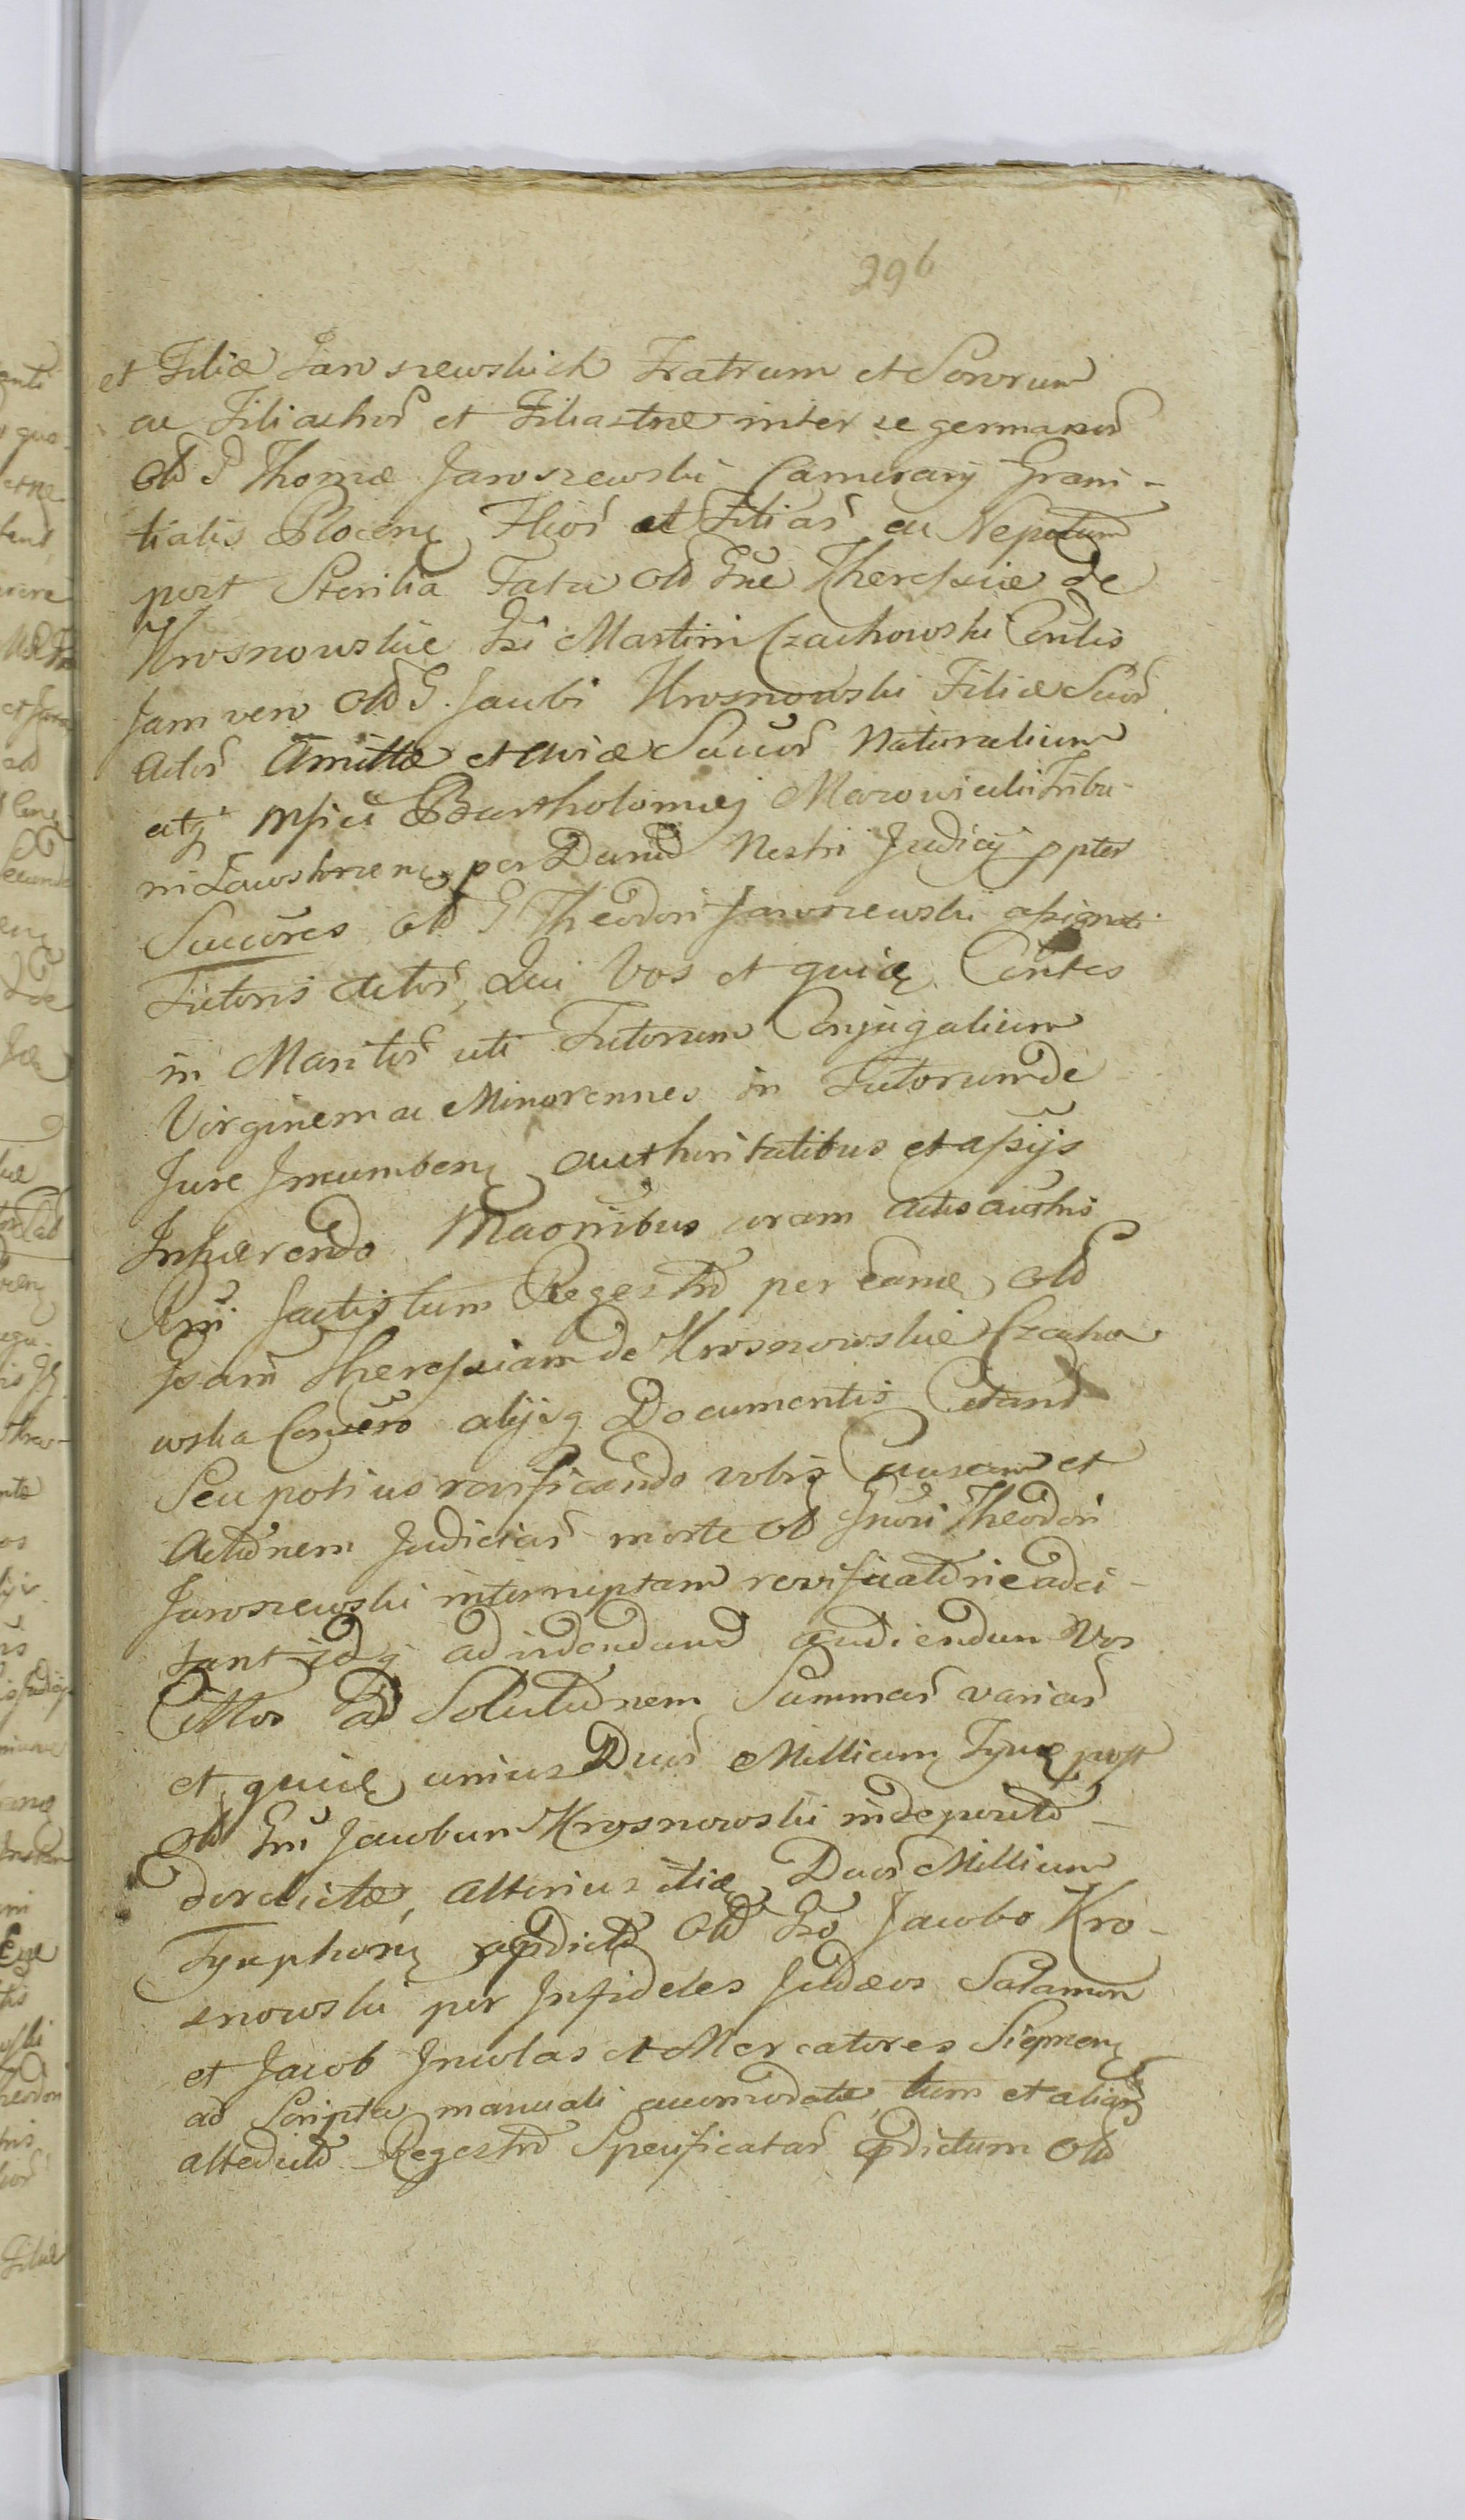 296
et Filiæ Jaroszewskich Fratrum et Sororum
ac Filiastror et Filiastræ inter se germanor
olb G Thomæ Jaroszewski Camerarij Grani-
tialis Plocen Flior et Filiar ac Nepotum
post Sterilia Fata olb Gnæ Theressiæ de
Krosnowskie Gsi Martini Czachowski Contlis
Jam vero olb G. Jacobi Krosnowski Filiæ Suor
Actor Amittæ et aviæ Succor Naturalium
atq Msici Bartholomej Mazowiecki Tribu-
ni per Decrud Nostri Judicij ppter
Succores olb G Theodori Jaroszewski assignati
Tutoris Actor, Qui Vos et quie Contes
in Maritor uti Tutorum Conjugalium
Virginem ac Minorennes in Tutorum de
Jure Incumben authoritatibus et assijs
Inhærendo Maonibus coram Actis
factis tum Regestro per eame olb
Gsam Theressiam de Krosnowskie Czacho
wska alijsq Documentis Citand
Seu potius revificando vobis Causam et
Actionem Judiciar morte olb Gnosi Theodori
Jaroszewski interruptam revificationie adci-
tant idq ad videndum audiendum Vos
Cittos ad Solutionem Summar variar
et quie unius Duor Millium Tymp post
olb Gm Jacobum Krosnowski indeposito
derelictæ, alterius itie Duor Millium
Tymphor apdicto olb Gso Jacobo Kro-
snowski per Infideles Judæos Salamon
et Jacob Incolas et Mercatores Siepren
ad Scripta manuali accomodatæ, tum et aliar
Regestro Specificatar apdictum olb